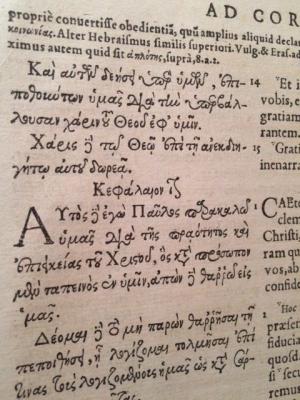 AD COR
propriè convertisse obedientiã, quũ amplius aliquid decla
κοινωνίας. Alter Hebraismus similis superiori. Vulg. & Eras. ad
ximus autem quid sit ἁπλότης, suprà, 8.a.2.
Καὶ αὐτῶν δεήσει ὑπὲρ ὑμῶν, ἐπι-
ποθούντων ὑμᾶς διὰ τὴν ὑπερβάλ-
λουσαν χάριν τοῦ Θεοῦ ἐφ᾽ ὑμῖν.
Χάρις δὲ τῷ Θεῷ ἐπὶ τῇ ἀνεκδιη-
γήτῳ αὐτοῦ δωρεᾷ.
Κεφάλαιον ι
Αὐτὸς δὲ ἐγὼ Παῦλος παρακαλῶ
ὑμᾶς διὰ τῆς πραότητος καὶ
ἐπιεικείας τοῦ Χριστοῦ, ὃς κατὰ πρόσωπον
μὲν ταπεινὸς ἐν ὑμῖν, ἀπὼν δὲ θαρρῶ εἰς
ὑμᾶς.
Δέομαι δὲ τὸ μὴ παρὼν θαρρῆσαι τῇ
πεποιθήσει, ᾗ λογίζομαι τολμῆσαι ἐπί
τινας τοὺς λογιζομένους ἡμᾶς ὡς κατὰ σάρ-
14
"Et i
vobis, e
gratiam
rantem
15
"Grati
inenarra
CAEte
clem
Christi,
ram qu
vos, ab
confide
"Hoc
præsen
fiducia
quosd
si sec
bule